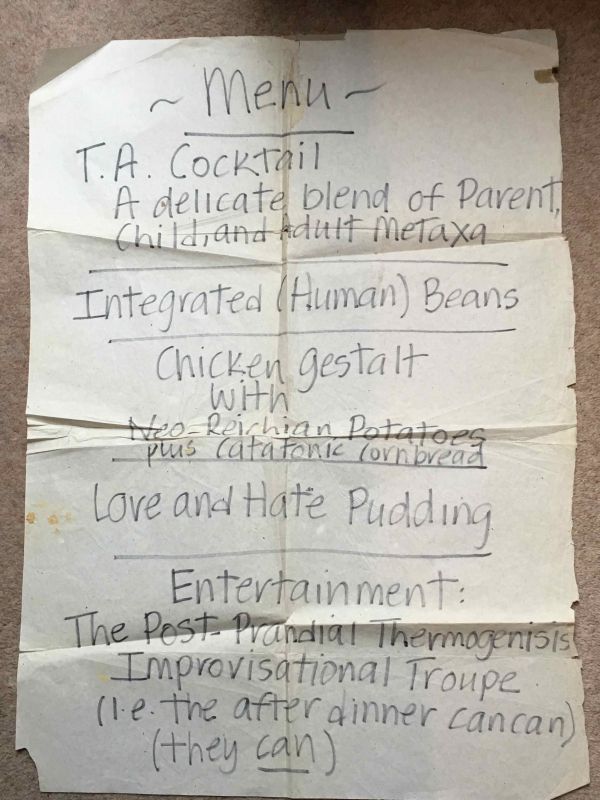 ~ Menu ~
T.A. Cocktail
A delicate blend of Parent,
Child, and Adult Metaxa
Integrated (Human) Beans
Chicken gestalt
with
Neo-Reichian Potatoes
plus Catatonic Cornbread
Love and Hate Pudding
Entertainment:
The Post-Prandial Thermogenisis
Improvisational Troupe
(i.e. the after dinner cancan)
(they can)